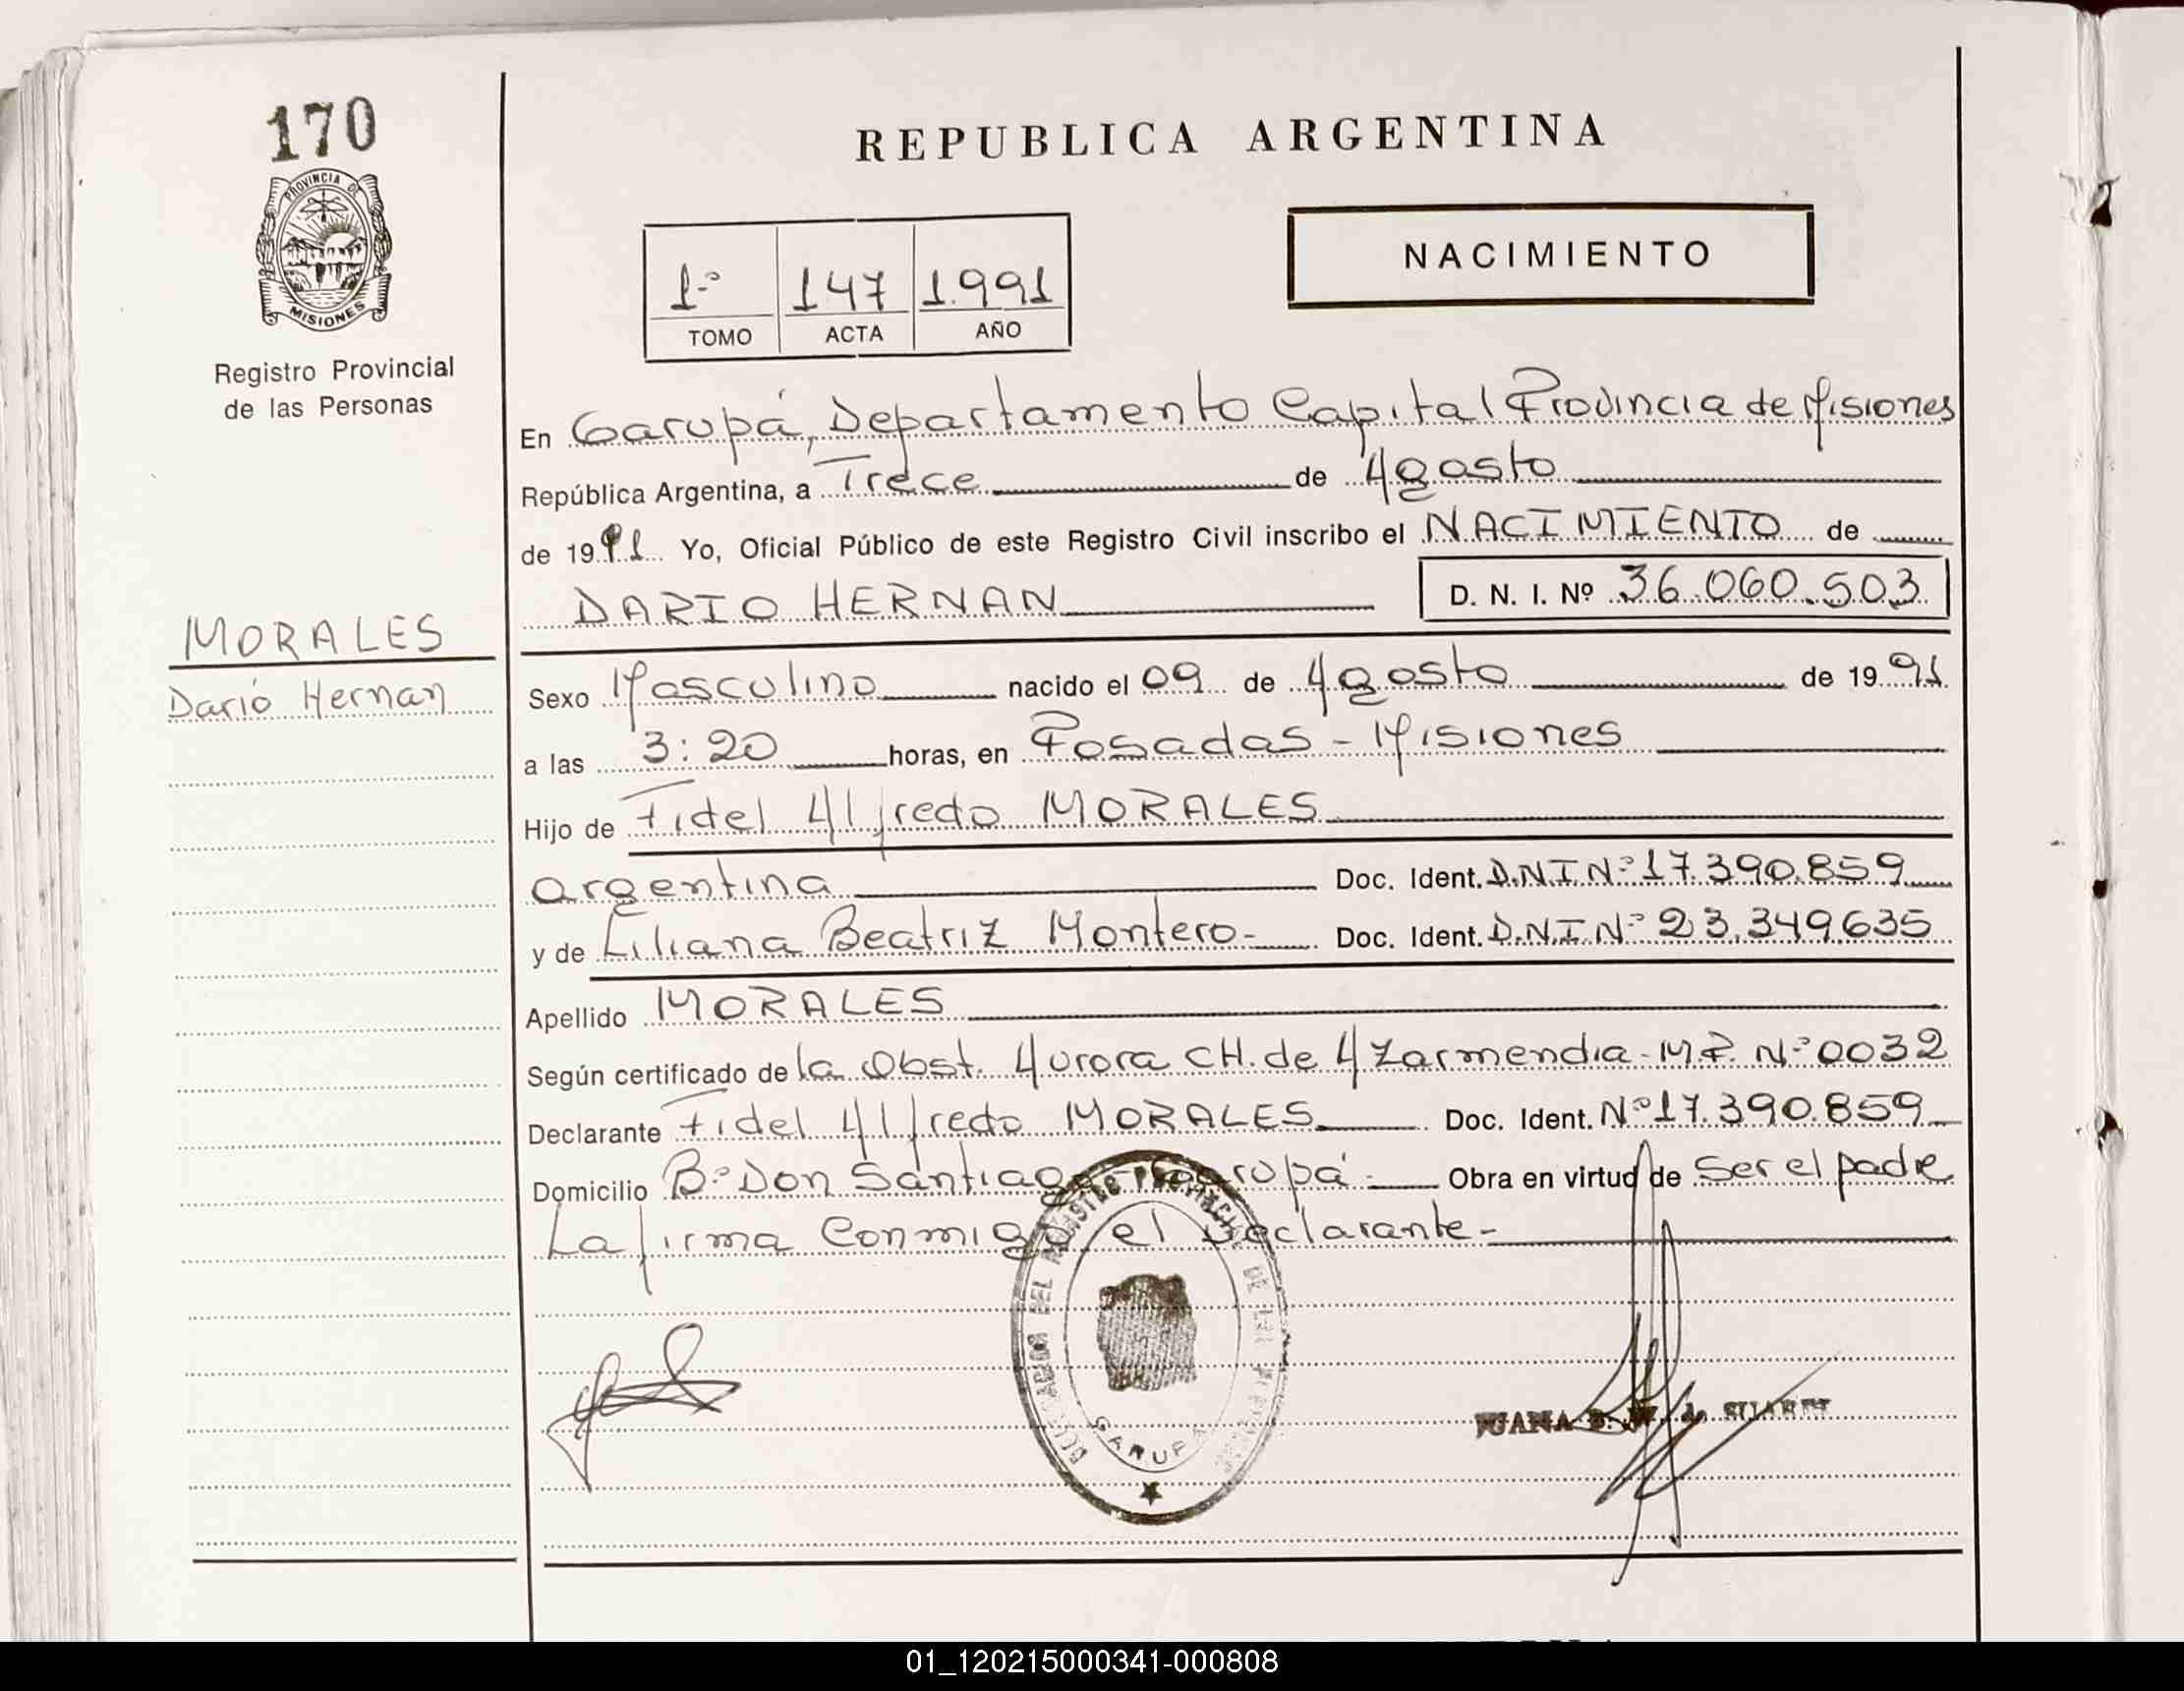 170
PROVINCIA DE
MISIONES
Registro Provincial
de las Personas
MORALES
Darió Hernan
REPUBLICA ARGENTINA
NACIMIENTO
1-º 147 1.991
TOMO ACTA AÑO
En Garupá, Departamento Capital Provincia de Misiones
República Argentina, a Trece de Agosto
de 1991 Yo, Oficial Público de este Registro Civil inscribo el NACIMIENTO de
DARIO HERNAN D. N. I. Nº 36.060.503
Sexo Masculino nacido el 09 de Agosto de 1991
a las 3:20 horas, en Posadas - Misiones
Hijo de Fidel Alfredo MORALES
argentina Doc. Ident. D.N.I Nº 17.390.859
y de Liliana Beatriz Montero- Doc. Ident. D.N.I Nº 23.349.635
Apellido MORALES
Según certificado de la Obst. Aurora CH. de Azarmendia - M.P. Nº 0032
Declarante Fidel Alfredo MORALES Doc. Ident. Nº 17.390.859
Domicilio Bº Don Santiago - Garupá - Obra en virtud de Ser el padre
La firma Conmigo el Declarante -
DEL REGISTRO PROVINCIAL DE LAS
GARUPA
JUANA SUAREZ
01_120215000341-000808